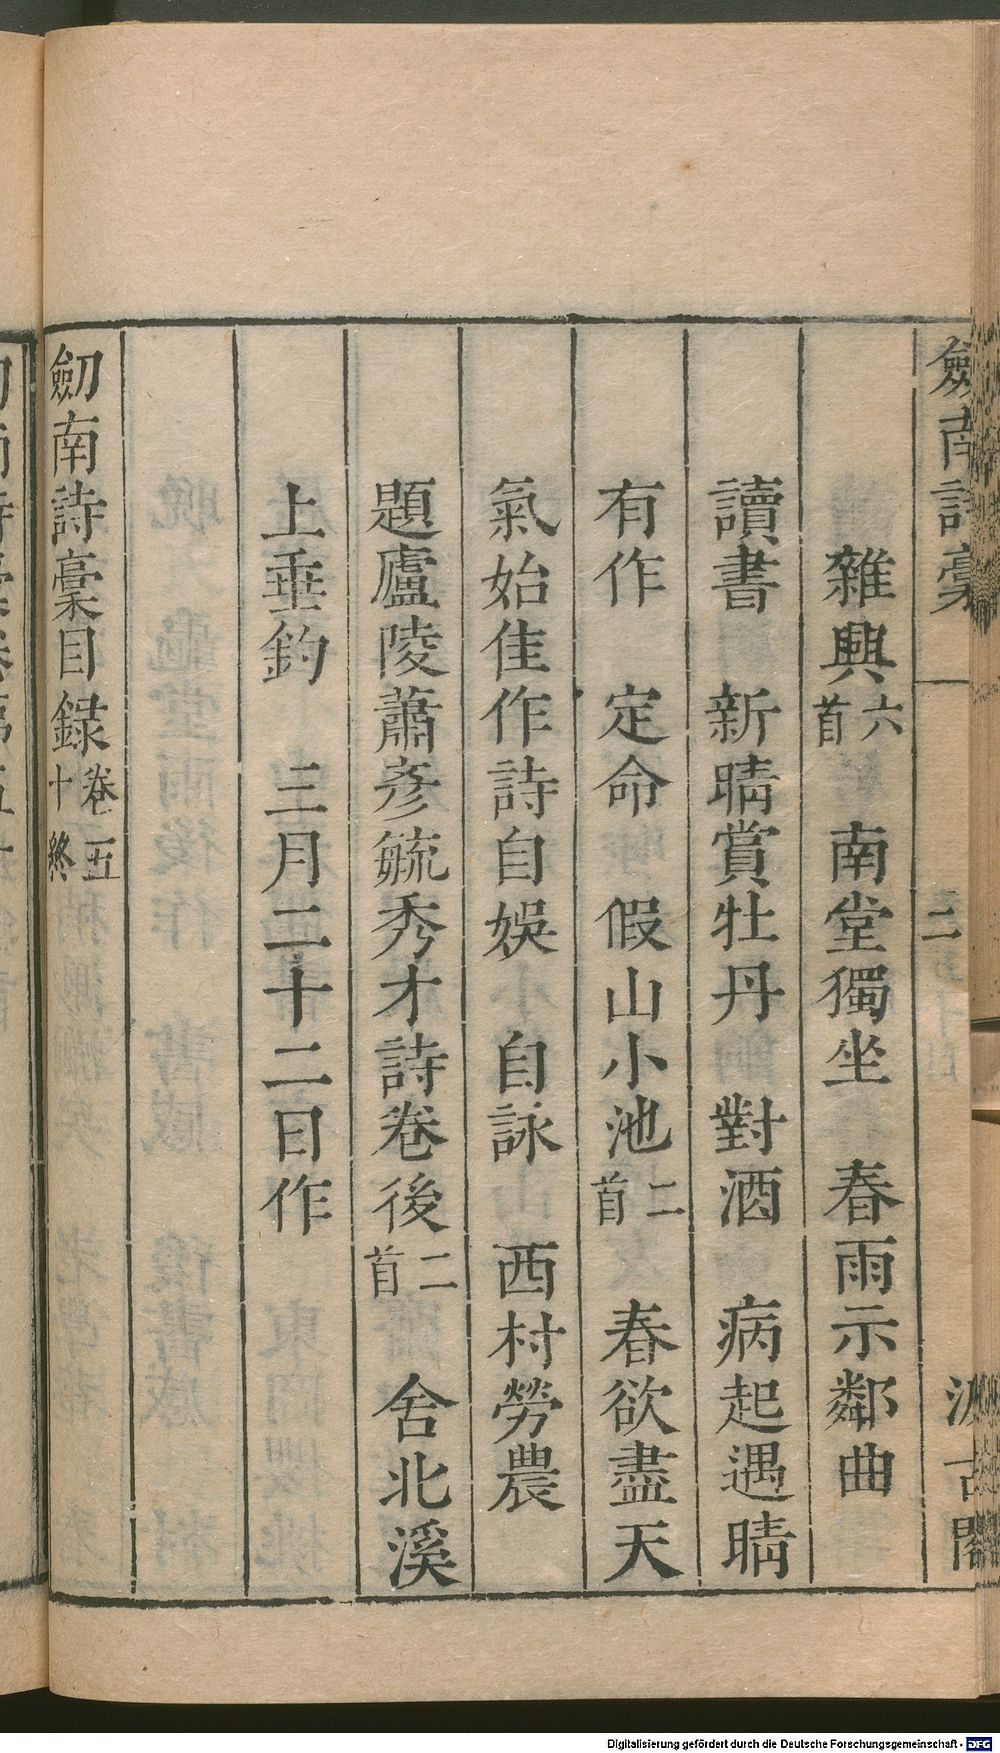 劍南詩稾 二 汲古閣
雜興六首 南堂獨坐 春雨示鄰曲
讀書 新晴賞牡丹 對酒 病起遇晴
有作 定命 假山小池二首 春欲盡天
氣始佳作詩自娛 自詠 西村勞農
題廬陵蕭彥毓秀才詩卷後二首 舍北溪
上垂釣 三月二十二日作
劒南詩稾目録卷五十終
Digitalisierung gefördert durch die Deutsche Forschungsgemeinschaft - DFG